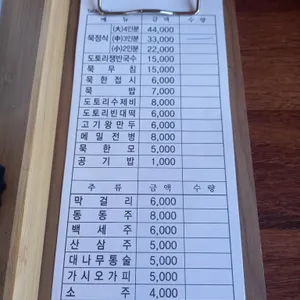 메 뉴 금 액 수 량
묵정식 (大)4인분 44,000
(中)3인분 33,000
(小)2인분 22,000
도토리쟁반국수 15,000
묵 무 침 15,000
묵 한 접 시 6,000
묵 밥 7,000
도토리수제비 8,000
도토리빈대떡 6,000
고기왕만두 6,000
메밀전병 8,000
묵 한 모 5,000
공 기 밥 1,000
주 류 금 액 수 량
막 걸 리 6,000
동 동 주 8,000
백 세 주 6,000
산 삼 주 5,000
대나무통술 5,000
가시오가피 5,000
소 주 4,000